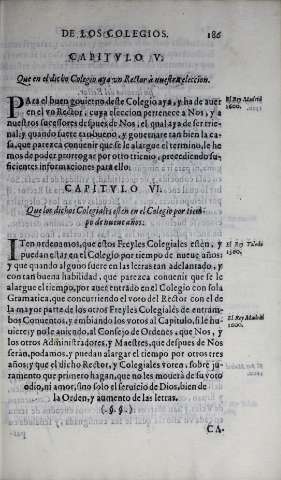 DE LOS COLEGIOS. 186
CAPITVLO V.
Que en el dicho Colegio aya vn Rector à nuestra eleccion.
PAra el buen gouierno deste Colegio aya, y ha de auer
en el vn Rector, cuya eleccion pertenece a Nos, y a
nuestros sucessores despues de Nos, el qual aya de ser trie
nal; y quando fuere tan bueno, y gouernare tan bien la ca
sa, que parezca conuenir que se le alargue el termino, le he
mos de poder prorrogar por otro trienio, precediendo su-
ficientes informaciones para ello.
El Rey Madrid
1600.
CAPITVLO VI.
Que los dichos Colegiales estèn en el Colegio por tiem
po de nueue años.
ITen ordenamos, que estos Freyles Colegiales estèn, y
puedan estar en el Colegio por tiempo de nueue años:
y que quando alguno fuere en las letras tan adelantado, y
con tan buena habilidad, que parezca conuenir que se le
alargue el tiempo, por auer entrado en el Colegio con sola
Gramatica, que concurriendo el voto del Rector con el de
la mayor parte de los otros Freyles Colegiales de entram-
bos Conuentos, y embiando los votos al Capitulo, si le hu-
uiere, y no le auiendo, al Consejo de Ordenes, que Nos, y
los otros Administradores, y Maestres, que despues de Nos
seràn, podamos, y puedan alargar el tiempo por otros tres
años; y que el dicho Rector, y Colegiales voten, sobre ju-
ramento que primero hagan, que no les mouerà de su voto
odio, ni amor, sino solo el seruicio de Dios, bien de
la Orden, y aumento de las letras.
(.§.§.)
El Rey Toledo
1560.
El Rey Madrid
1600.
CA-